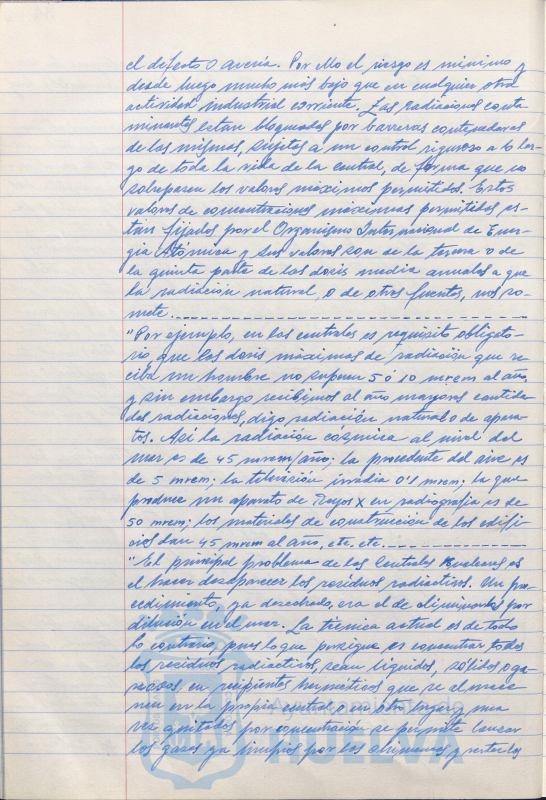 el defecto o avería. Por ello el riesgo es mínimo y
desde luego mucho más bajo que en cualquier otra
actividad industrial corriente. Las radiaciones conta-
minantes están bloqueadas por barreras contenedoras
de las mismas, sujetas a un control riguroso a lo lar-
go de toda la vida de la central, de forma que no
sobrepasen los valores máximos permitidos. Estos
valores de concentraciones máximas permitidas es-
tán fijados por el Organismo Internacional de Ener-
gía Atómica y sus valores son de la tercera o de
la quinta parte de las dosis media anuales a que
la radiación natural, o de otras fuentes, nos so-
mete.
"Por ejemplo, en las centrales es requisito obligato-
rio, que las dosis máximas de radiación que re-
ciba un hombre no superen 5 ó 10 mrem al año,
y sin embargo recibimos al año mayores cantida-
des radiaciones, digo radiación natural o de apara-
tos. Así la radiación cósmica al nivel del
mar es de 45 mrem/año; la procedente del aire es
de 5 mrem; la televisión irradia 0'1 mrem; la que
produce un aparato de Rayos X en radiografía es de
50 mrem; los materiales de construcción de los edifi-
cios dan 45 mrem al año, etc. etc.
"El principal problema de las Centrales Nucleares es
el hacer desaparecer los residuos radiactivos. Un pro-
cedimiento, ya desechado, era el de eliminarlos por
dilución en el mar. La técnica actual es de todo
lo contrario, pues lo que persigue es concentrar todos
los residuos radiactivos, sean líquidos, sólidos o ga-
seosos en recipientes herméticos que se almace-
nen en la propia central o en otro lugar y una
vez agotados por concentración se permite lanzar
los gases ya limpios por las chimeneas y verter los
HUELVA